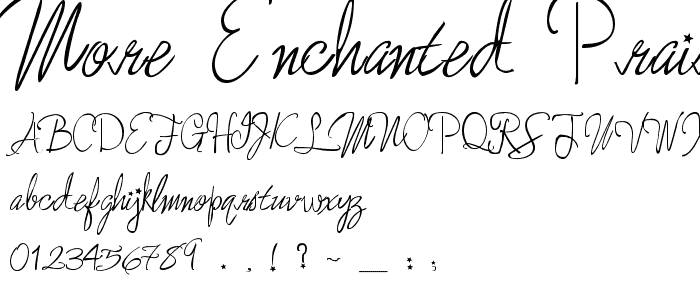 More Enchanted Prais
ABCDEFGHIJKLMNOPQRSTUVWX
abcdefghijklmnopqrstuvwxyz
0123456789 . , ! ? ~ _ : ;